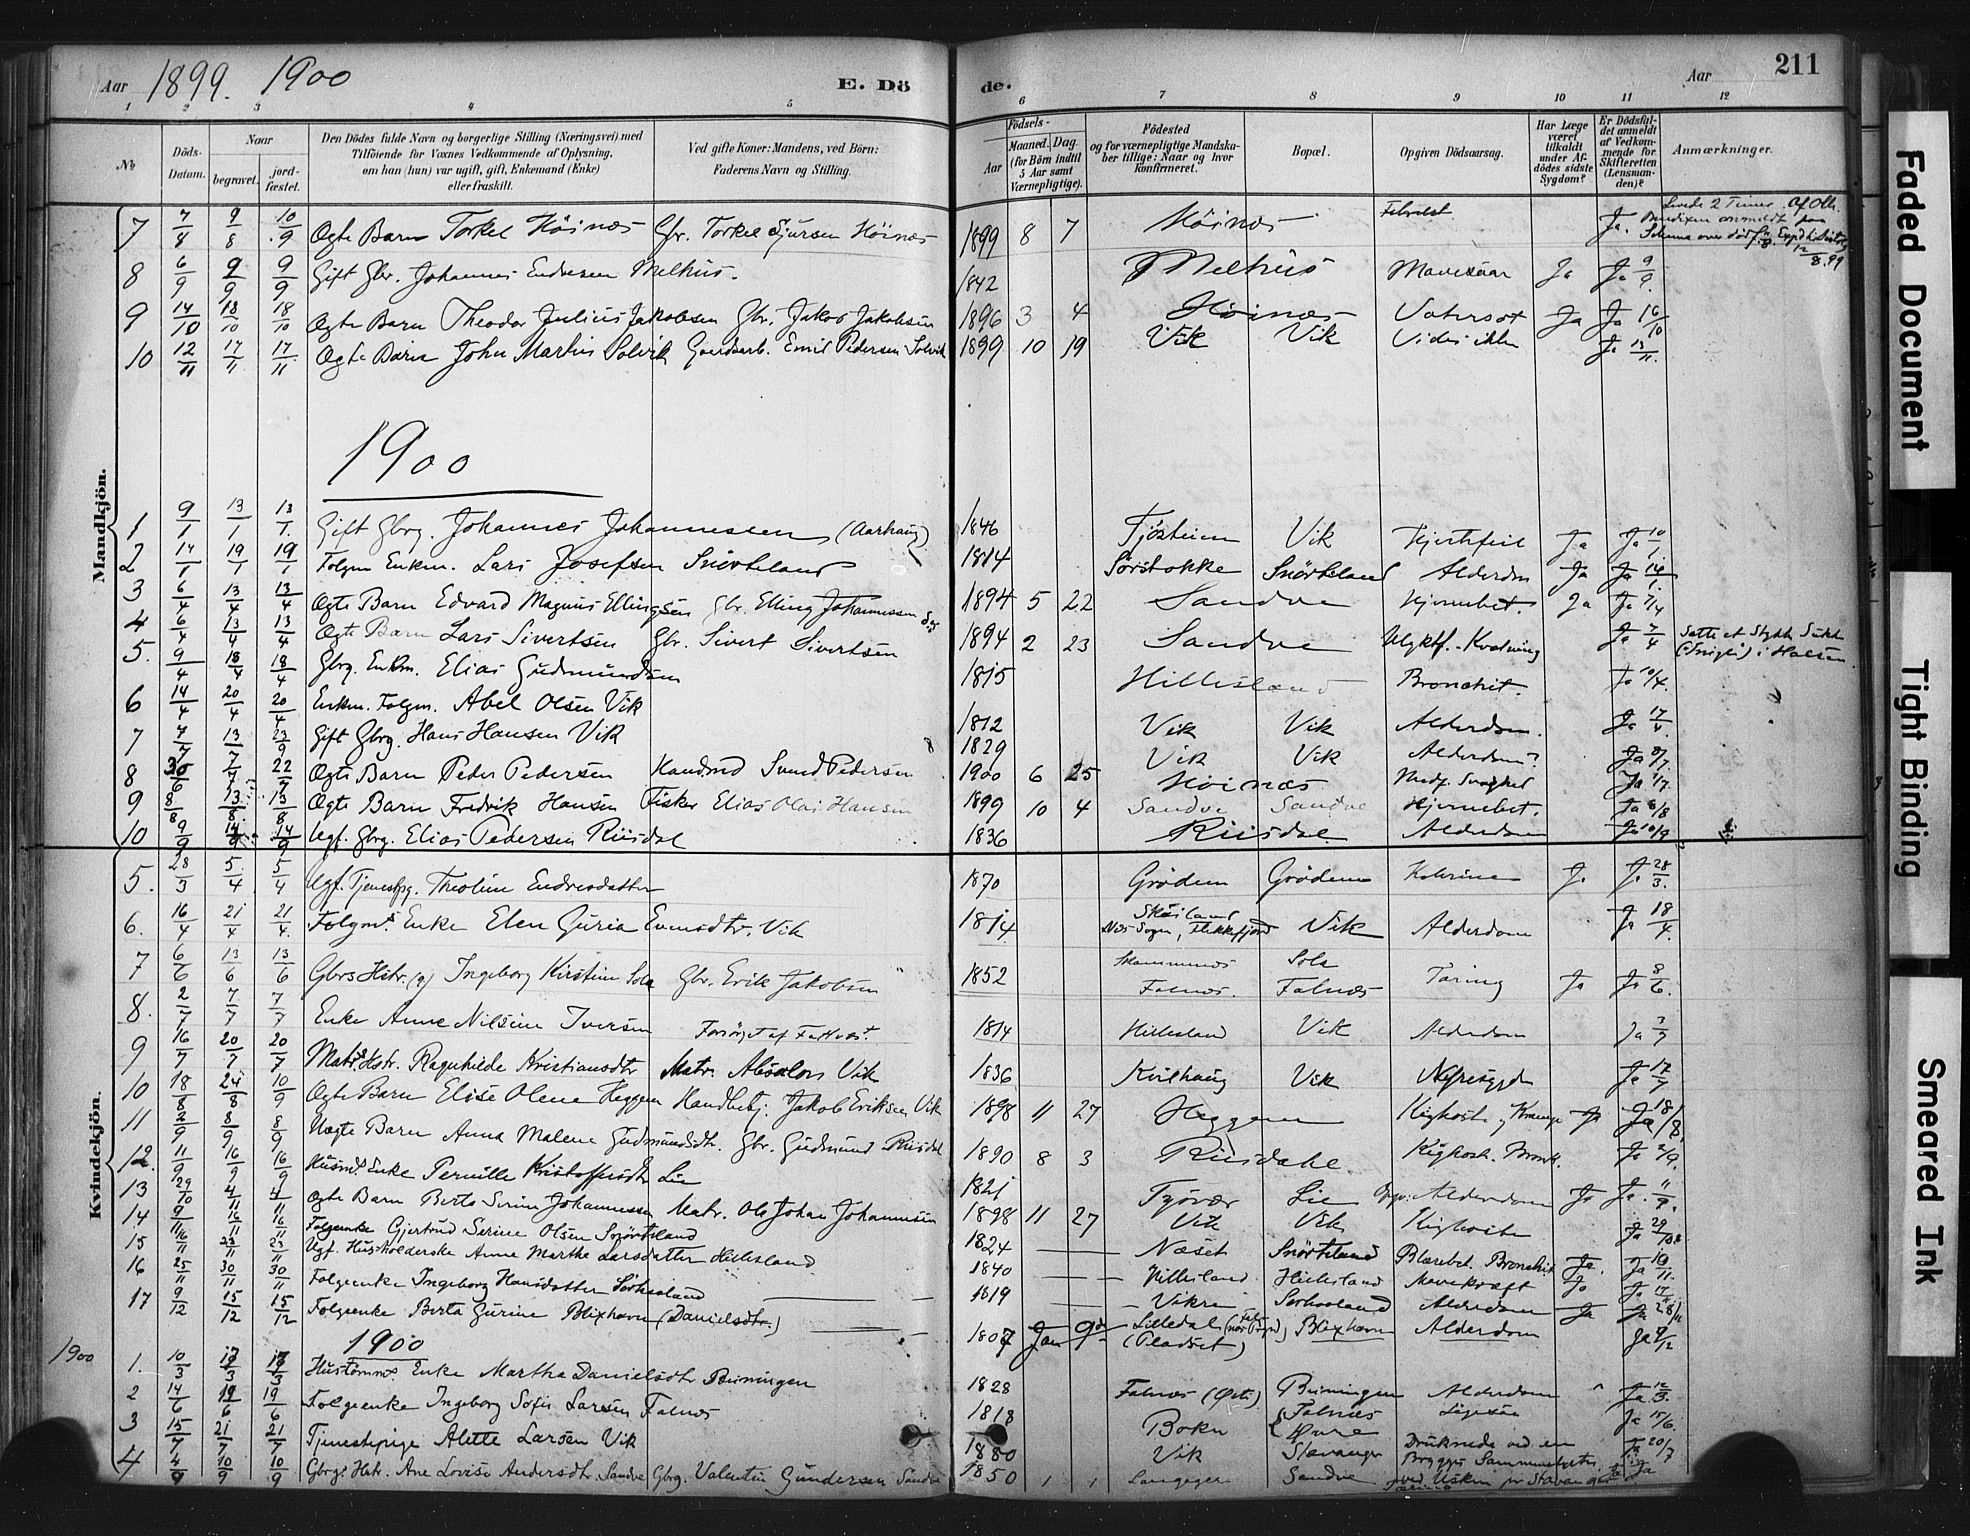 Aar 1899. 1900 E. Dö de. Aar 211
1 2 3 4 5 6 7 8 9 10 11 12
No
Döds-Datum.
Naar
begravet.
jord-fæstet.
Den Dödes fulde Navn og borgerlige Stilling (Næringsvei) med
Tilföiende for Voxnes Vedkommende af Oplysning,
om han (hun) var ugift, gift, Enkemand (Enke)
eller fraskilt.
Ved gifte Koner: Mandens, ved Börn:
Faderens Navn og Stilling.
Födsels-
Aar
Maaned. Dag.
(for Börn indtil
5 Aar samt
Værnepligtige).
Födested
og for værnepligtige Mandska-
ber tillige: Naar og hvor
konfirmeret.
Bopæl.
Opgiven Dödsaarsag.
Har Læge
været
tilkaldt
under Af-
dödes sidste
Sygdom?
Er Dödsfal-
det anmeldt
af Vedkom-
mende for
Skifteretten
(Lensman-
den)?
Anmærkninger.
Mandkjön.
7 7/8 9/8 10/9 Ægte Barn Torkel Höinæs Gbr. Torkel Sjursen Höinæs 1899 8 7 Höinæs Ja. Levede 2 Timer.
8 6/9 9/9 9/9 Gift Gbr. Johannes Endresen Melhus. 1842 Melhus Mavesaar Ja Ja 9/9.
9 14/10 18/10 18/10 Ægte Barn Theodor Julius Jakobsen Gbr. Jakob Jakobsen 1896 3 4 Höinæs Vatersot Ja Ja 16/10
10 12/11 17/11 17/11. Ægte Barn John Martin Solvik Gaardsarb. Emil Pedersen Solvik 1899 10 19 Vik Vik Vides ikke Ja 13/11.
1900
1 9/1 13/1 13/1. Gift Gbrg. Johannes Johannessen (Aarhaug) 1846 Tjösteim Vik Hjertefeil Ja Ja 10/1.
2 14/1 19/1 19/1 Folgm Enkm. Lars Josefsen Snörteland 1814 Sörstokke Snörteland Alderdom Ja Ja 14/1.
3 6/4 13/4 13/4 Ægte Barn Edvard Magnus Ellingsen Gbr. Elling Johannessen 1894 5 22 Sandve Hjernebet. Ja Ja 7/4
4 6/4 13/4 13/4 Ægte Barn Lars Sivertsen Gbr. Sivert Sivertsen 1894 2 23 Sandve Ulyktf. - Kvælning Ja 7/4 Satte et Stykke Sukk i Halsen.
5. 9/4 18/4 18/4 Gbrg. Enkm. Elias Gudmundsen 1815 Hillesland Bronchit. Ja 10/4.
6 14/4 20/4 20/4 Enkm. Folgm. Abel Olsen Vik 1812 Vik Vik Alderdom. Ja 17/4
7 7/7 13/7 23/9 Gift Gbrg. Hans Hansen Vik 1829 Vik Vik Alderdom? Ja 8/7.
8 30/6 7/7 22/7 Ægte Barn Peder Pedersen Handmd Svend Pedersen 1900 6 25 Höinæs Medf. Svaghed Ja
9 8/8 13/8. 13/8 Ægte Barn Fredrik Hansen Fisker Elias Olai Hansen 1899 10 4 Sandve Sandve Hjernebet. Ja 8/8
10 9/9 14/9 14/9 Ugf. Gbrg. Elias Pedersen Riisdal 1836 Riisdal Alderdom Ja 10/9
Kvindekjön.
5. 28/3 5/4 5/4 Ugf. Tjenestpg. Theoline Endresdatter 1870 Grödem Grödem Ja Ja 28/3.
6. 16/4 21/4 21/4. Folgms Enke Elen Guria Evensdtr. Vik 1814 Næs Sogn, Flekkefjord Vik Alderdom Ja 18/4.
7 6/6 13/6 13/6 Gbrs Hstr. (g) Ingeborg Kirstine Sola Gbr. Erik Jakobsen 1852 Falnæs. Sola Falnæs Tæring Ja Ja 8/6.
8. 2/7 7/7 7/7 Enke Anne Nilsine Iversen Forsörget af Fattigvæs. 1814 Hillesland Vik Alderdom Ja 3/7
9 16/7 20/7 20/7 Matr. Hstr. Ragnhilde Kristiansdtr Matr. Absalon Vik 1836 Kvilhaug Vik Nyresygd Ja 17/7
10 18/8 24/8 10/9 Ægte Barn Elise Olene Heggem Handbetj. Jakob Eriksen Vik 1898 11 27 Heggem Kighoste, Krampe Ja Ja 18/8.
11 2/9 8/9 8/9 Uægte Barn Anna Malene Gudmundsdtr. Gbr. Gudmund Riisdal 1890 8 3 Riisdahl. Kighost. Bronk. Ja 2/9.
12. 11/9 16/9 16/9 Husmds Enke Pernille Kristoffersdtr Lie 1821 Tysvær Lie Opgv: Alderdom Ja Ja. 11/9.
13 29/10 4/11 4/11 Ægte Barn Berta Sirine Johannessen Matr. Ole Johan Johannesen 1898 11 27 Vik Vik Kighoste Ja 29/10
14 9/11 16/11 16/11 Folgeenke Gjertrud Serine Olsen Snörteland 1824 Næset Snörteland Blærebet. Bronchit Ja. Ja 10/11.
15 16/11 23/11 23/11 Ugf. Husholderske Anne Marthe Larsdatter Hillesland 1840 Hillesland Hillesland Mavekræft Ja Ja 17/11
16 25/11 30/11 30/11 Folgeenke Ingeborg Hansdatter Sörhaaland 1819 Vikre Sörhaaland Alderdom Ja Ja 28/11
17 9/12 15/12 15/12 Folgeenke Berta Gurine Blixhavn (Danielsdtr.) 1807 Jan 9de Lilledal (Pladset) Blixhavn Alderdom Ja 9/12
1900 1900
1. 10/3 17/3 17/3 Hustömmds Enke Martha Danielsdtr Buningen 1828 Falnæs Buningen Alderdom Ja 12/3.
2 14/6 19/6 19/6 Folgeenke Ingeborg Sofie Larsen Falnæs 1818 Bokn Falnæs Övre Ja 15/6.
3 15/7 21/7 21/7 Tjenestepige Alette Larsen Vik 1880 Vik Stavanger Druknede ved en Brygge ved Stavanger Ja 20/7
4 4/9 10/9 10/9 Gbrgs Hstr. Ane Lovise Andersdtr. Sandve Gbrg. Valentin Gundersen Sandve 1850 1 1 Sandve Tæring Ja Ja
Faded Document
Tight Binding
Smeared Ink